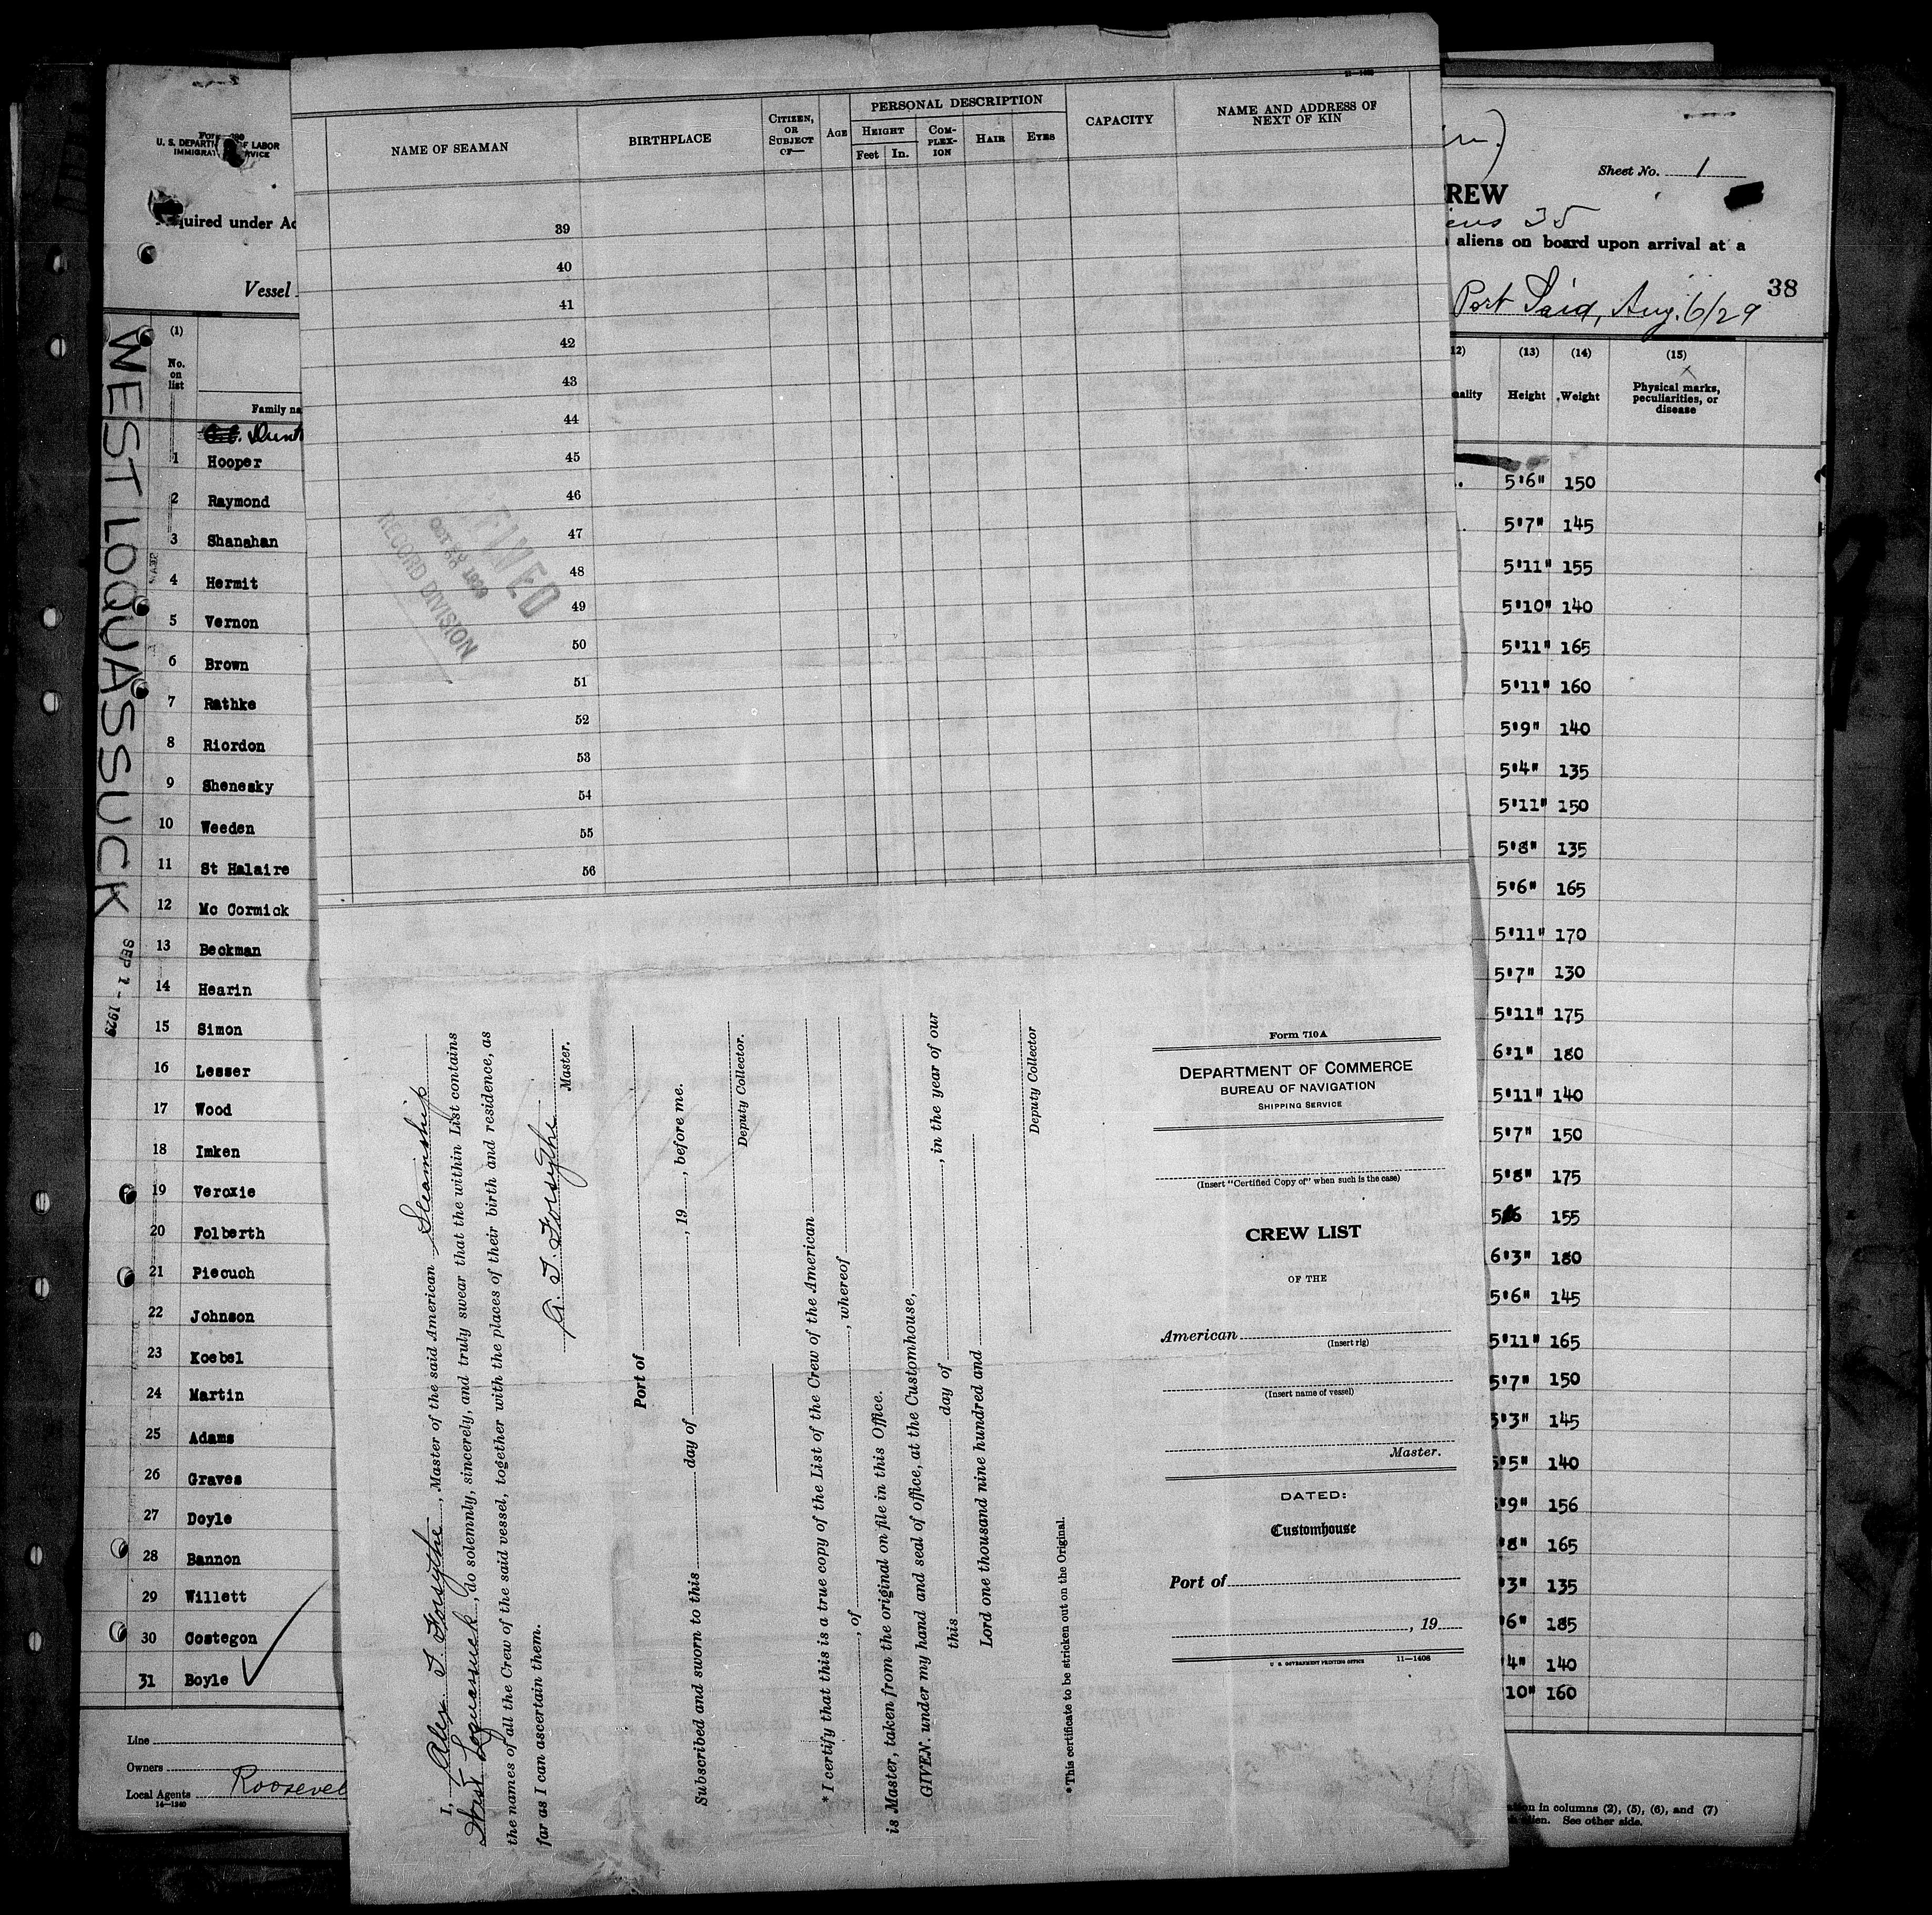 U. S. DEPARTM OF LABOR
IMMIGRAT RVICE
quired under Ac
Vessel
WEST LOQUASSUCK
SEP 1 - 1929
(1)
No.
on
list
Family na
1 Hooper
2 Raymond
3 Shanahan
4 Hermit
5 Vernon
6 Brown
7 Rathke
8 Riordon
9 Shenesky
10 Weeden
11 St Halaire
12 Mc Cormick
13 Beckman
14 Hearin
15 Simon
16 Lesser
17 Wood
18 Imken
19 Veroxie
20 Folberth
21 Piecuch
22 Johnson
23 Koebel
24 Martin
25 Adams
26 Graves
27 Doyle
28 Bannon
29 Willett
30 Costegon
31 Boyle
Line
Owners
Local Agents Roosevel
14—1240
NAME OF SEAMAN
BIRTHPLACE
CITIZEN,
OR
SUBJECT
OF—
AGE
PERSONAL DESCRIPTION
HEIGHT
Feet In.
COM-
PLEX-
ION
HAIR
EYES
CAPACITY
NAME AND ADDRESS OF
NEXT OF KIN
39
40
41
42
43
44
45
46
47
48
49
50
51
52
53
54
55
56
RECORD DIVISION
I, Alex. T. Forsythe, Master of the said American Steamship
West Loquassuck, do solemnly, sincerely, and truly swear that the within List contains
the names of all the Crew of the said vessel, together with the places of their birth and residence, as
far as I can ascertain them.
A. T. Forsythe
Master.
Port of
Subscribed and sworn to this day of , 19 , before me.
Deputy Collector.
* I certify that this is a true copy of the List of the Crew of the American
, of , whereof
is Master, taken from the original on file in this Office.
GIVEN under my hand and seal of office, at the Customhouse,
this day of , in the year of our
Lord one thousand nine hundred and
Deputy Collector
*This certificate to be stricken out on the Original.
Form 710 A
DEPARTMENT OF COMMERCE
BUREAU OF NAVIGATION
SHIPPING SERVICE
(Insert "Certified Copy of" when such is the case)
CREW LIST
OF THE
American
(Insert rig)
(Insert name of vessel)
Master.
DATED:
Customhouse
Port of
, 19
U. S. GOVERNMENT PRINTING OFFICE 11—1408
Sheet No. 1
REW
35
aliens on board upon arrival at a
38
Port Said, Aug. 6/29
12) (13) (14) (15)
nality Height Weight
Physical marks,
peculiarities, or
disease
5'6" 150
5'7" 145
5'11" 155
5'10" 140
5'11" 165
5'11" 160
5'9" 140
5'4" 135
5'11" 150
5'8" 135
5'6" 165
5'11" 170
5'7" 130
5'11" 175
6'1" 180
5'11" 140
5'7" 150
5'8" 175
155
6'3" 180
5'6" 145
5'11" 165
5'7" 150
5'3" 145
5'5" 140
'9" 156
'8" 165
'3" 135
'6" 185
'4" 140
10" 160
ation in columns (2), (5), (6), and (7)
alien. See other side.